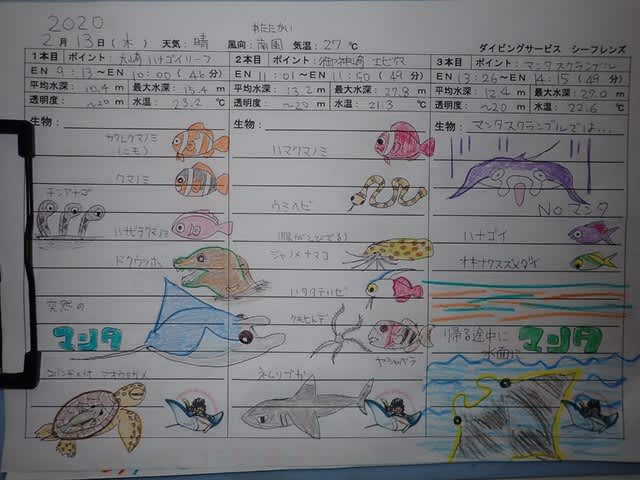 2020
2月13日(木) 天気:晴 風向:南風 気温:27℃
あたたかい
ダイビングサービス シーフレンズ
1本目 ポイント:大崎 ハナゴイリーフ
EN 9:13~EN 10:00(46分)
平均水深:10.4 m 最大水深:15.4 m
透明度:~20m 水温:23.2℃
生物:
カクレクマノミ
(ニモ)
クマノミ
チンアナゴ
ハナビラクマノミ
ドクウツボ
突然の
マンタ
コバンザメ付 アオウミガメ
2本目 ポイント:御神崎
EN 11:01~EN 11:51(49分)
平均水深:13.2 m 最大水深:27.8 m
透明度:~20m 水温:21.3℃
生物:
ハマクマノミ
ウミヘビ
ジャノメナマコ
ハタタテハゼ
クモヒトデ
ヤシャベラ
ネムリブカ
3本目 ポイント:マンタスクランブル
EN 13:26~EN 14:15(49分)
平均水深:12.4 m 最大水深:27.0 m
透明度:~20m 水温:22.6℃
生物:マンタスクランブルでは…
Noマンタ
ハナゴイ
オキナワスズメダイ
帰る途中に
水面に
マンタ